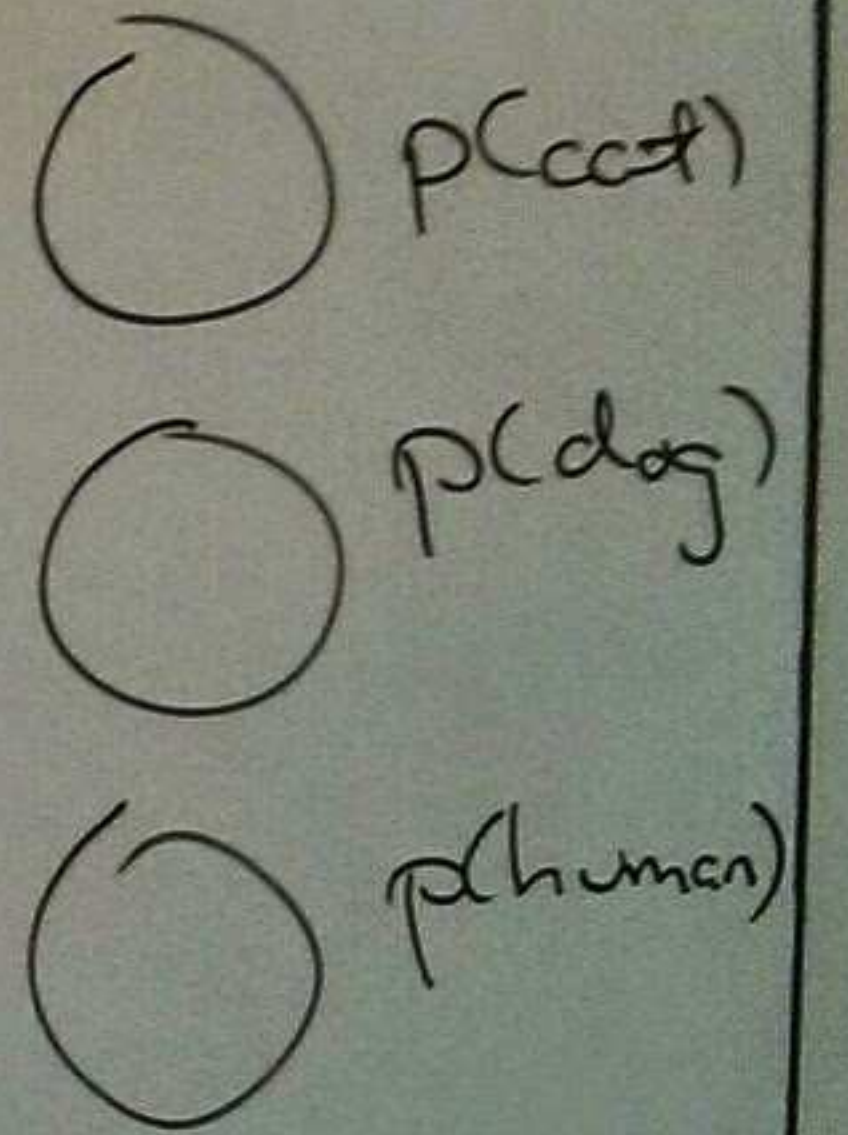 p(cat)
p(dog)
p(human)